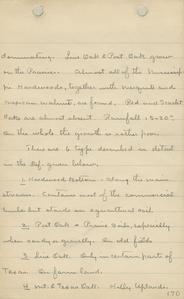 dominating. Live Oak & Post Oak grow
on the Prairie. Almost all of the Mississip-
pi Hardwoods, together with Mesquite and
Mexican Walnut, are found. Red and Scarlet
Oaks are almost absent. Rainfall 15-30".
On the whole the growth is rather poor.
There are 6 types described in detail
in the Ref. given below.
1. Hardwood Bottom - Along the main
streams. Contains most of the commercial
timber but stands on agricultural soil.
2. Post Oak - Prairie Soils, especially
when sandy or gravelly. On old fields
3. Live Oak. Only in certain parts of
Texas. On farm land.
4. Mt. & Texas Oak. Hilly Uplands.
170